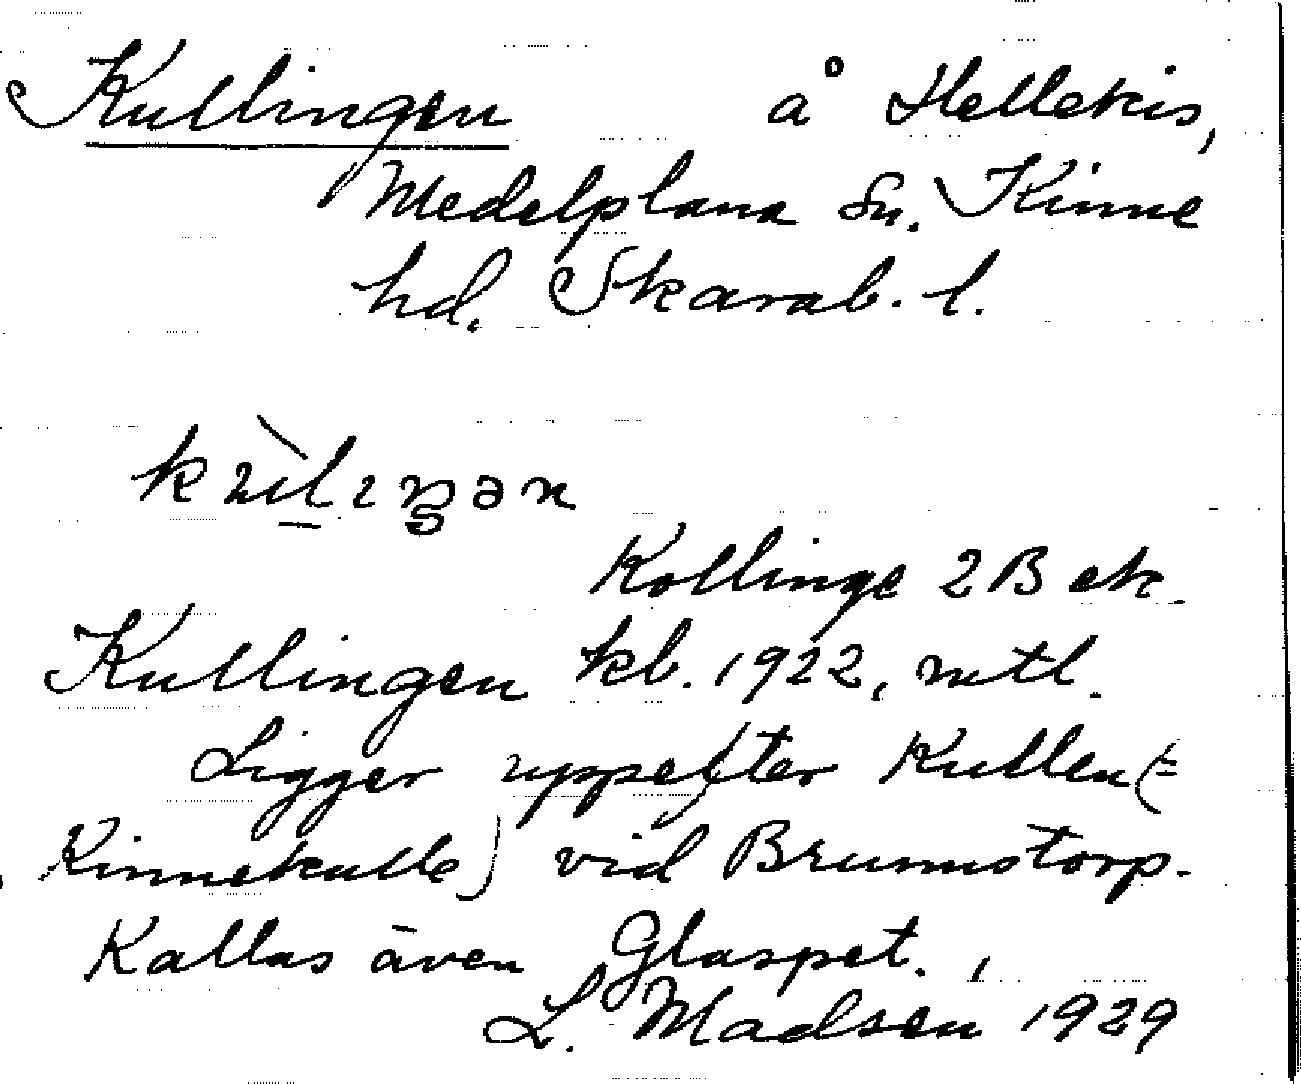 Kullingen å Hellekis,
Medelplana sn. Kinne
hd. Skarab. l.
Kollinge 2 B ek.
Kullingen kb. 1922, mtl.
Ligger uppefter Kullen (=
Kinnekulle) vid Brunnstorp.
Kallas även Glaspet.
L. Madsen 1929